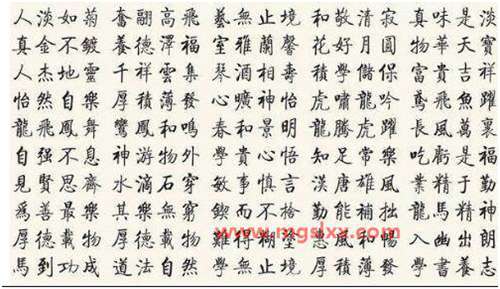 人淡如菊 奮翮高飛 藝無止境 和敬清寂 真味是淡
真金不鍍 養德澤福 室雅蘭馨 花好月圓 物華天寶
人杰地靈 千祥雲集 琴心酒 壽 積學儲 富貴吉祥
怡然自樂 厚積薄發 曠神怡 虎嘯龍吟 鳶飛魚躍
龍飛鳳舞 鸞鳳和鳴 春和景明 龍騰虎躍 長風萬里
自强不息 神游物外 學貴心悟 知足常樂 吃虧是福
見賢思齊 水滴石穿 敏事慎言 漢唐雄風 業精于勤
爲善最樂 其樂無窮 鍥而不 勤能補拙 龍馬精神
厚德載物 難得糊塗 惠風和暢 入幽出朗
馬到功成 道法自然 學無止境 厚積薄發 學書養志
www.mgslxx.com